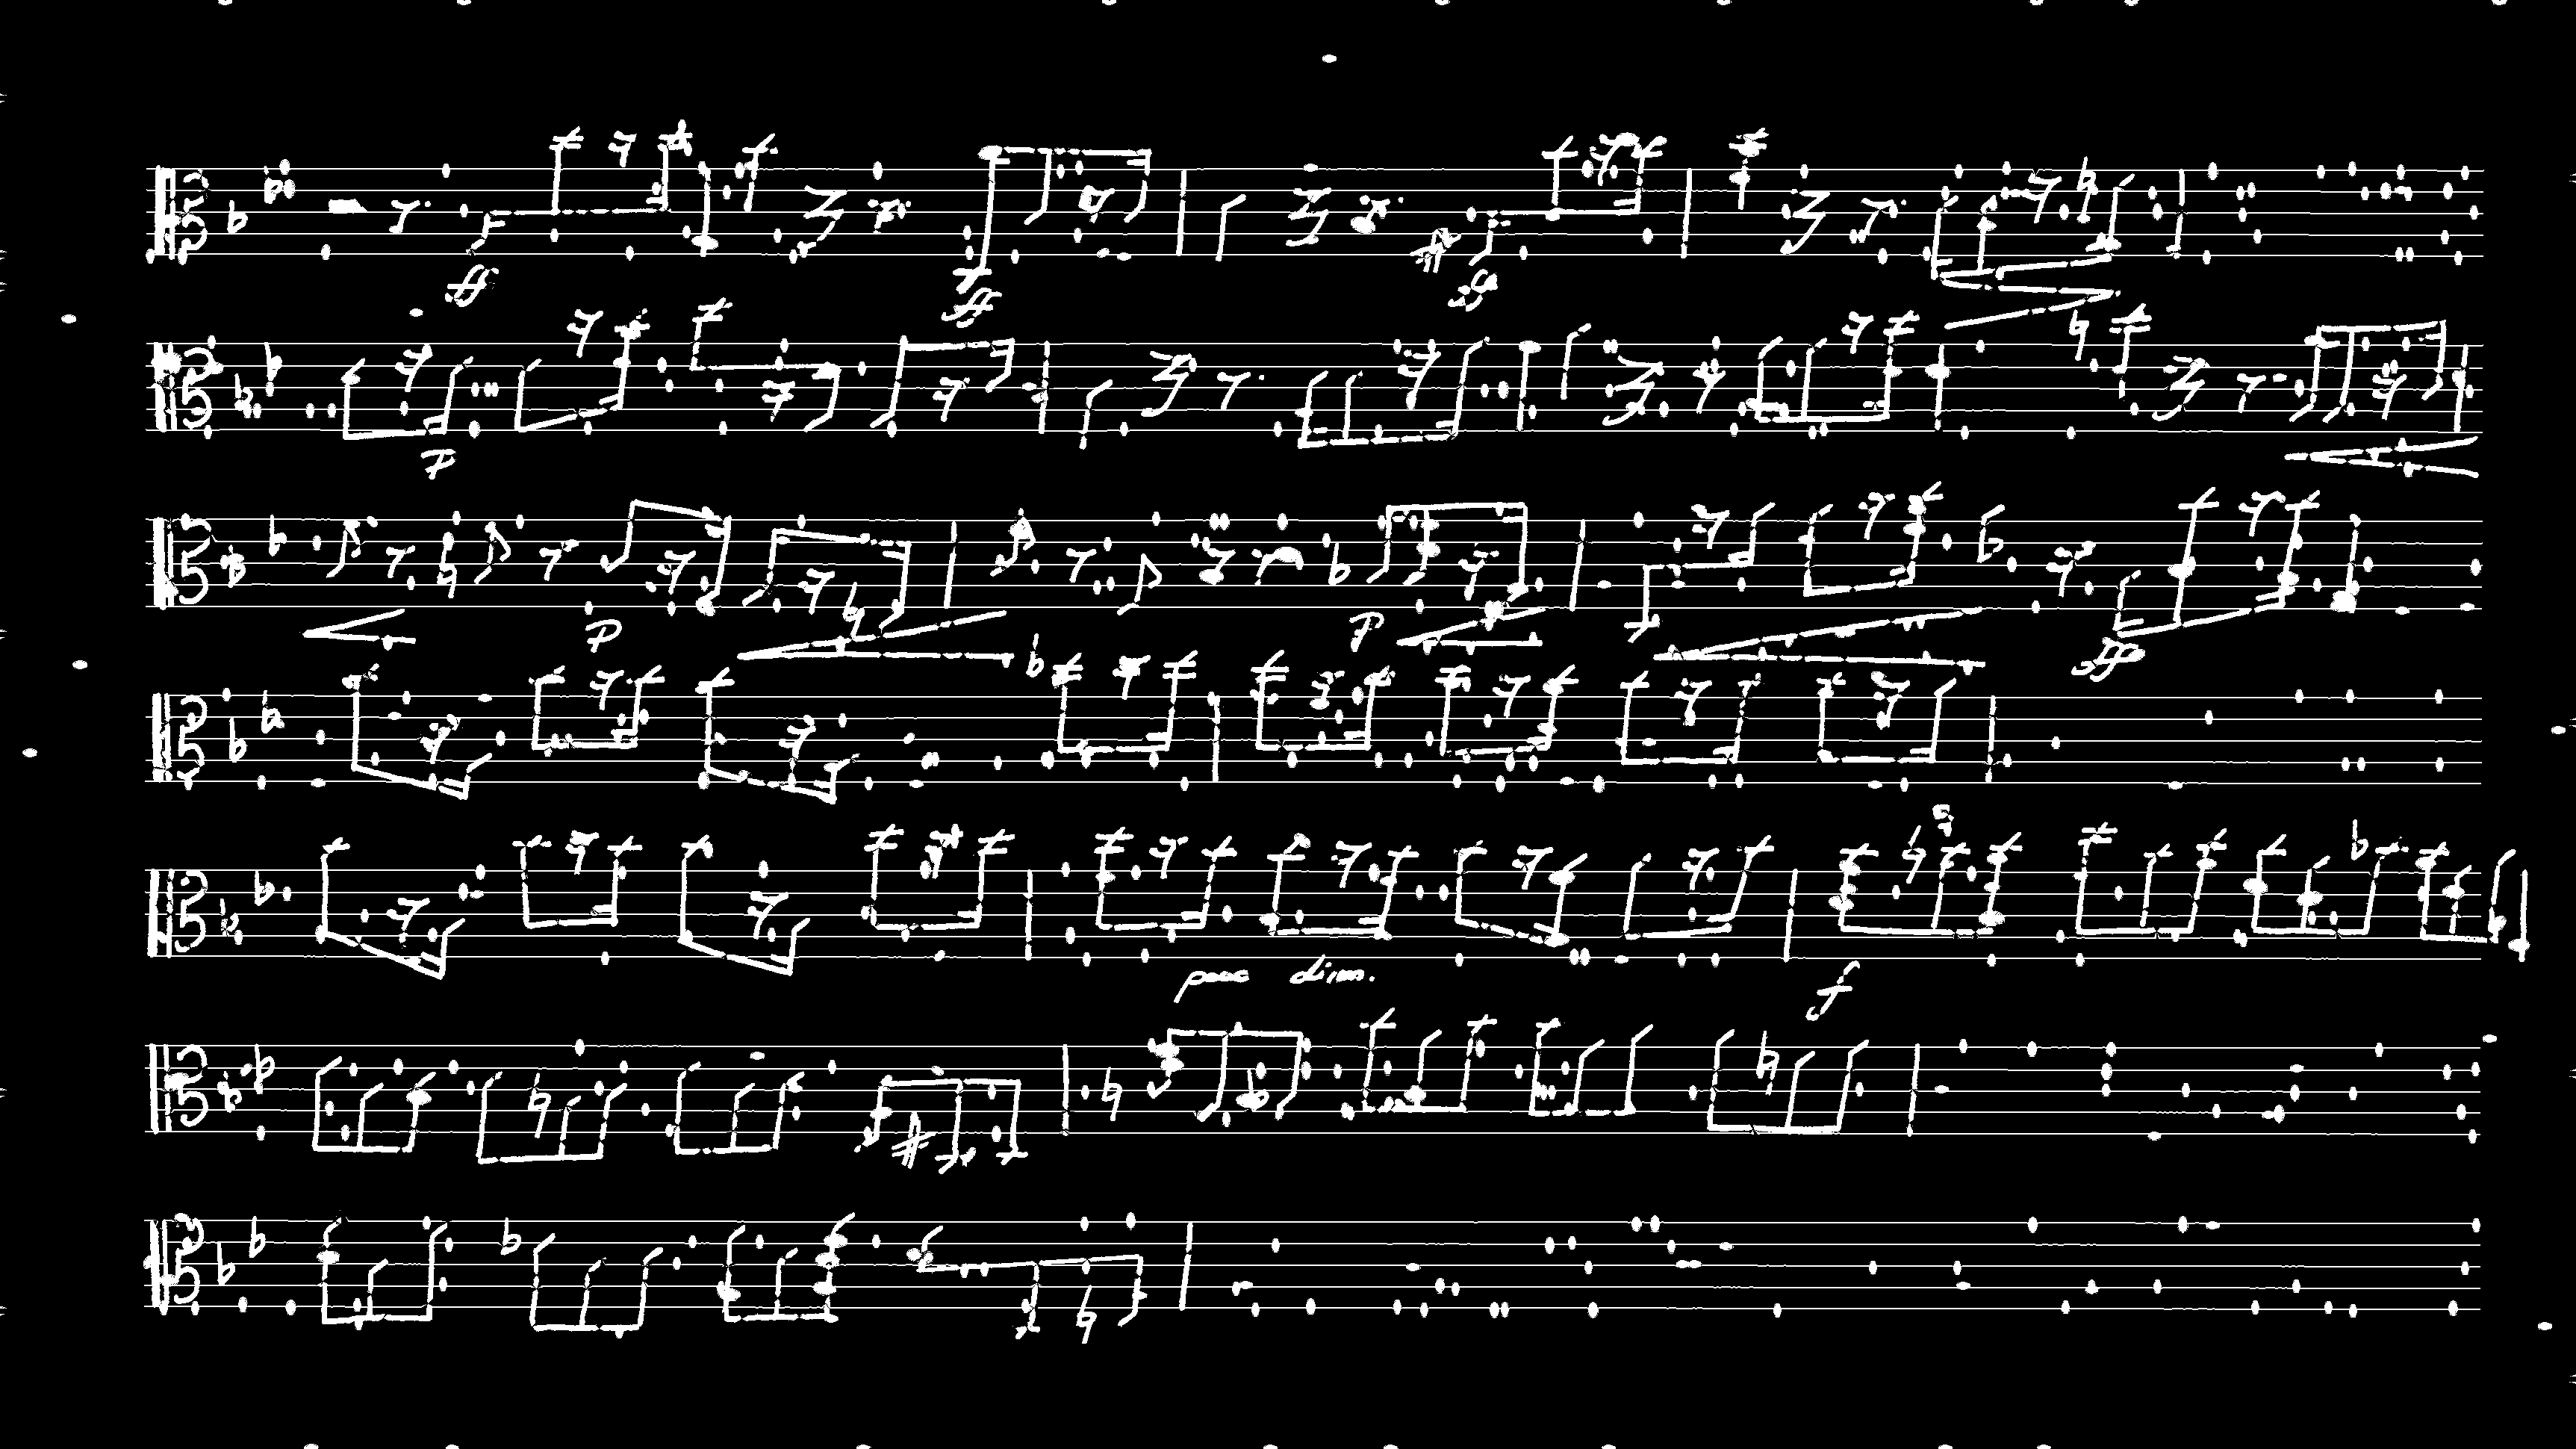 ff ff sf
p
p p ff
poco dim. f